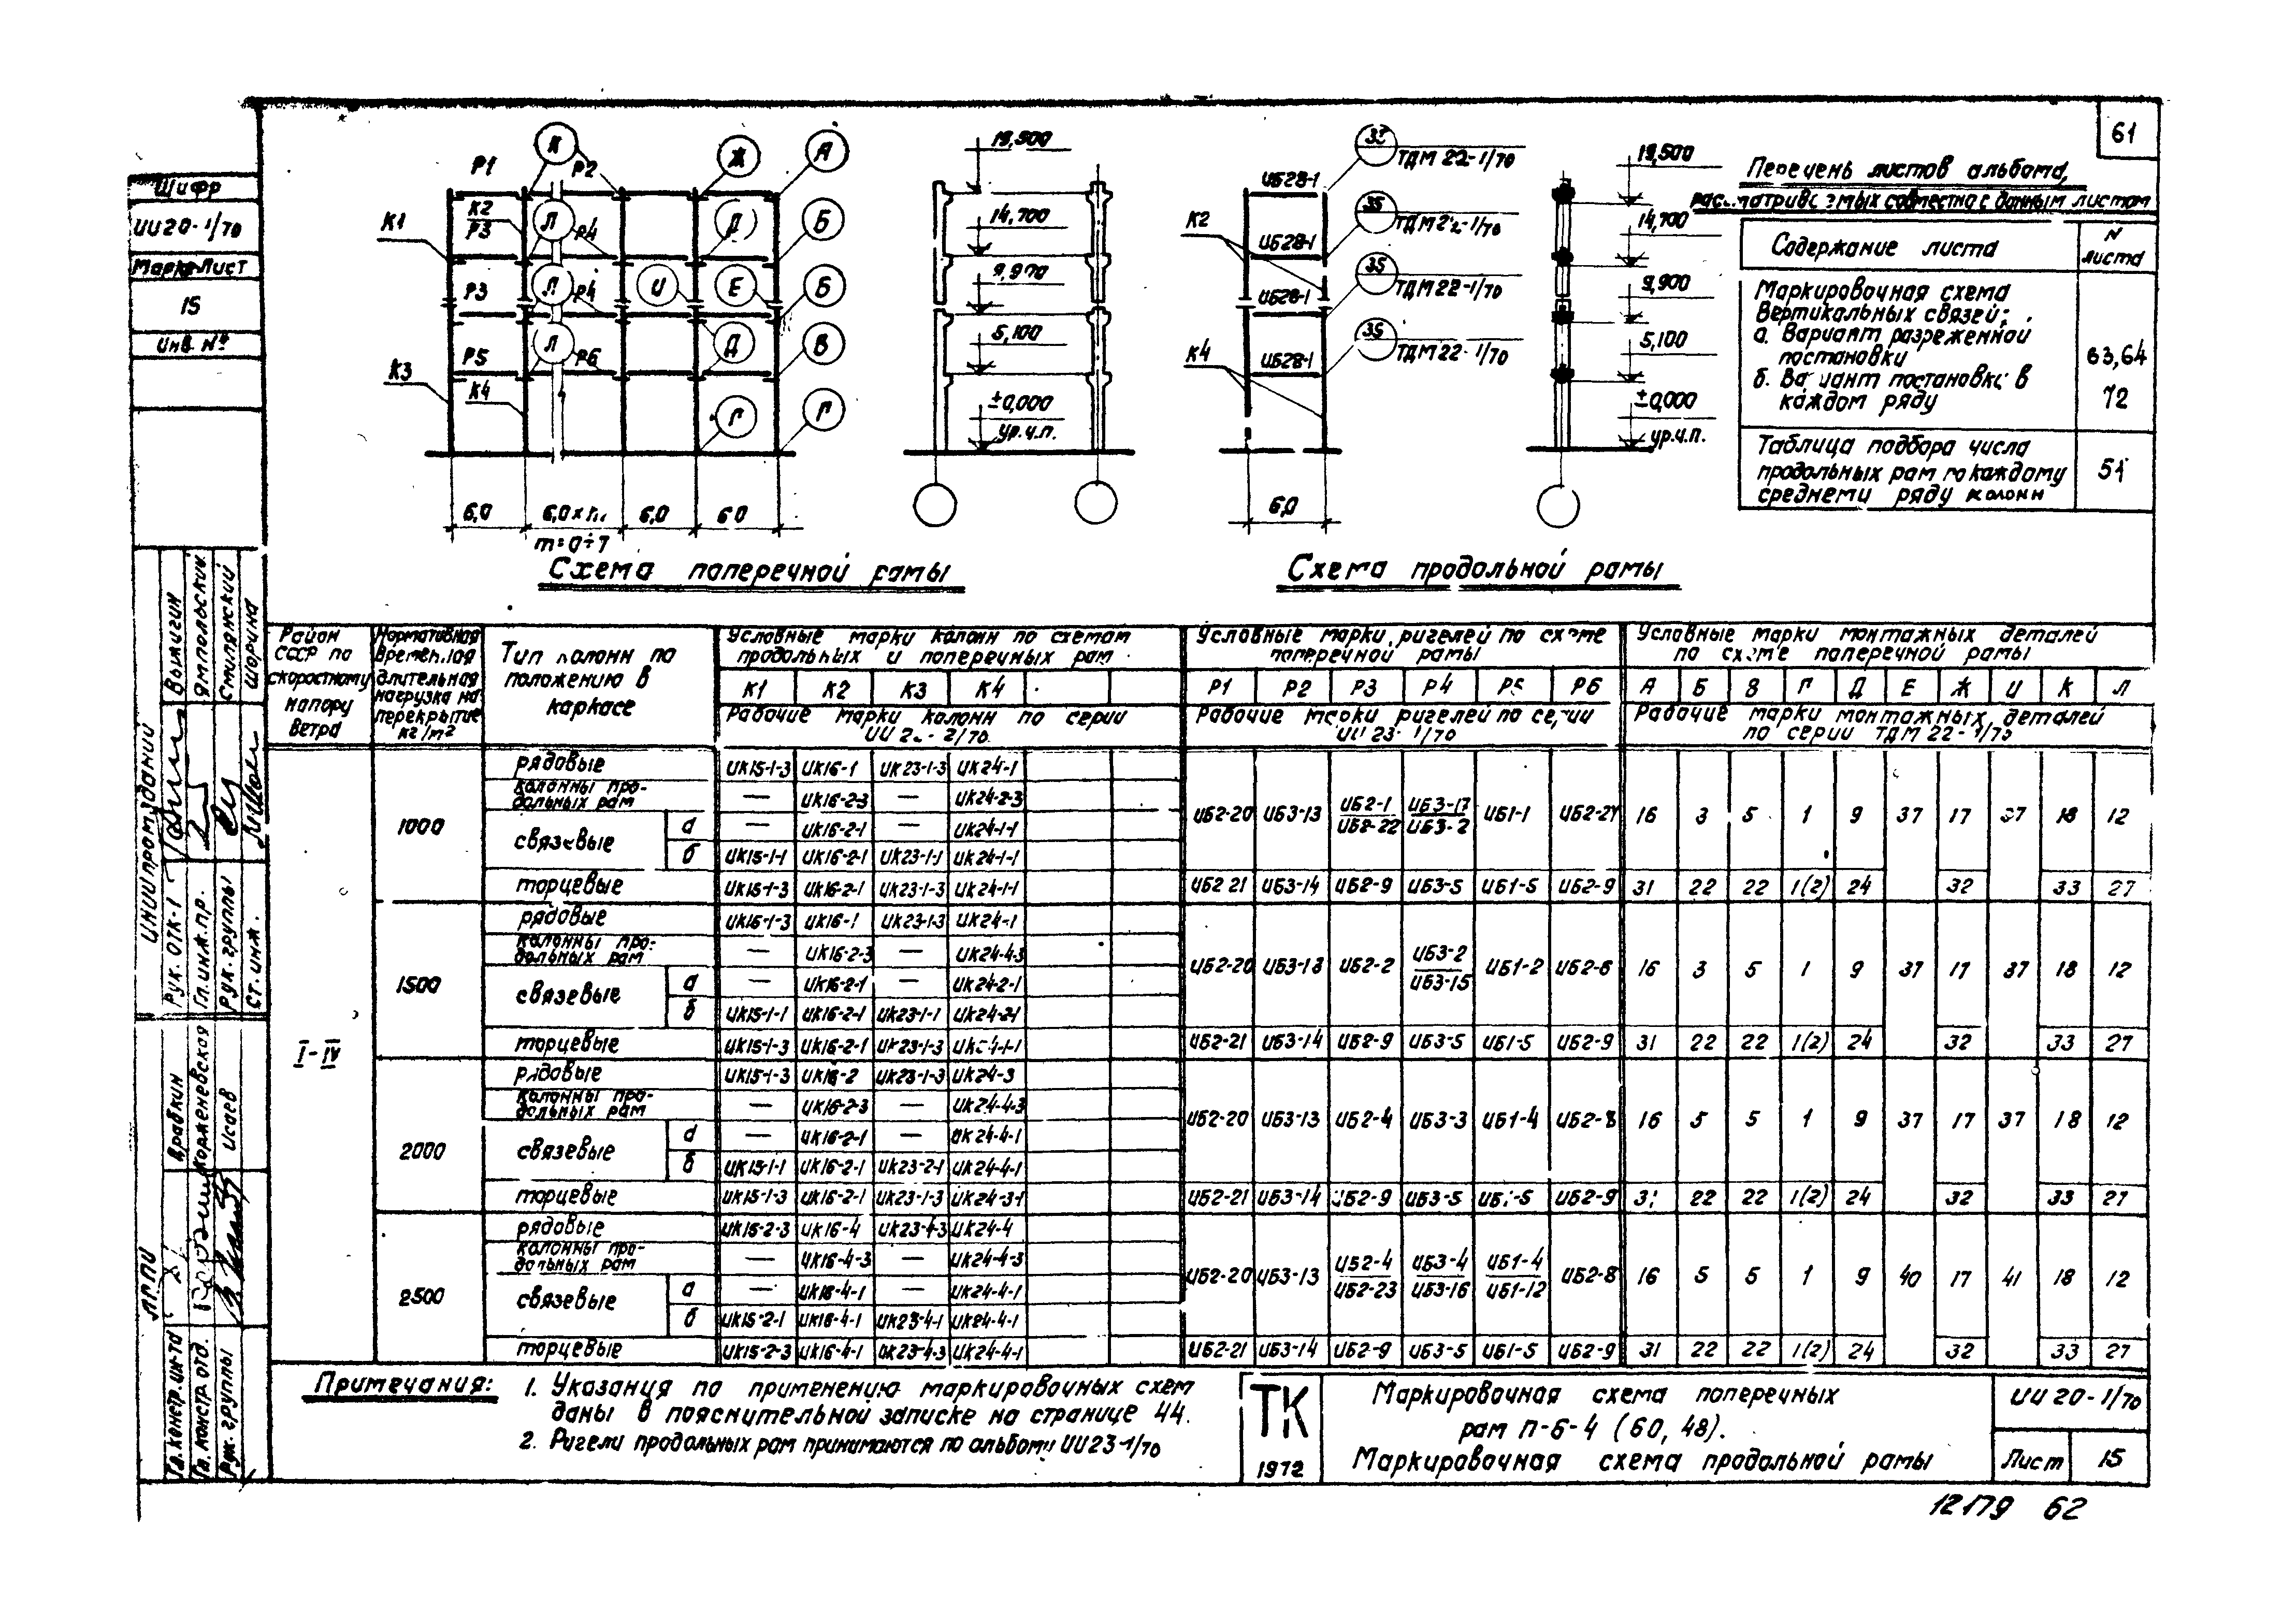 61
Шифр
ИИ20-1/70
Марка-Лист
15
Инв. №
Р1
К
Р2
Ж
А
К1
К2
Р3
Л
Р4
Д
Б
Р3
Л
Р4
И
Е
Б
К3
Р5
Л
Р6
Д
В
К4
Г
Г
6,0
6,0
6,0
m=0÷7
Схема поперечной рамы
19,500
14,700
5,100
±0,000
ур.ч.п.
ИБ28-1
32
ТДМ 22-1/70
К2
ИБ28-1
35
ТДМ 22-1/70
ИБ28-1
35
ТДМ 22-1/70
К4
ИБ28-1
35
ТДМ 22-1/70
6,0
19,500
14,700
9,900
5,100
±0,000
ур.ч.п.
Схема продольной рамы
Перечень листов альбома,
рассматриваемых совместно с данным листом
Содержание листа
N листа
Маркировочная схема
Вертикальных связей:
а. Вариант разреженной
постановки
63,64
б. Вариант постановки в
каждом ряду
72
Таблица подбора числа
продольных рам по каждому
среднему ряду колонн
51
Район СССР по скоростному напору ветра
Нормативная временная длительная нагрузка на перекрытие кг/м²
Тип колонн по положению в каркасе
Условные марки колонн по схемам продольных и поперечных рам
Условные марки ригелей по схеме поперечной рамы
Условные марки монтажных деталей по схеме поперечной рамы
К1 К2 К3 К4
Р1 Р2 Р3 Р4 Р5 Р6
А Б В Г Д Е Ж И К Л
Рабочие марки колонн по серии ИИ 22-2/70
Рабочие марки ригелей по серии ИИ 23-1/70
Рабочие марки монтажных деталей по серии ТДМ 22-1/70
I-IV
1000
рядовые ИК15-1-3 ИК16-1 ИК23-1-3 ИК24-1
колонны продольных рам — ИК16-2-3 — ИК24-2-3
связевые а — ИК16-2-1 — ИК24-1-1
б ИК15-1-1 ИК16-2-1 ИК23-1-1 ИК24-1-1
ИБ2-20 ИБ3-13 ИБ2-1/ИБ2-22 ИБ3-17/ИБ3-2 ИБ1-1 16 3 5 1 9 37 17 37 18 12
торцевые ИК15-1-3 ИК16-2-1 ИК23-1-3 ИК24-1-1 ИБ2-21 ИБ3-14 ИБ2-9 ИБ3-5 ИБ1-5 ИБ2-9 31 22 22 1(2) 24 32 33 27
1500
рядовые ИК15-1-3 ИК16-1 ИК23-1-3 ИК24-1
колонны продольных рам — ИК16-2-3 — ИК24-4-3
связевые а — ИК16-2-1 — ИК24-2-1
б ИК15-1-1 ИК16-2-1 ИК23-1-1 ИК24-2-1
ИБ2-20 ИБ2-2 ИБ3-2/ИБ3-15 ИБ1-2 ИБ2-6 16 3 5 1 9 37 17 37 18 12
торцевые ИК15-1-3 ИК16-2-1 ИК23-1-3 ИБ2-21 ИБ3-14 ИБ2-9 ИБ3-5 ИБ1-5 ИБ2-9 31 22 22 1(2) 24 32 33 27
2000
рядовые ИК15-1-3 ИК16-2 ИК23-1-3 ИК24-3
колонны продольных рам — ИК16-2-3 — ИК24-4-3
связевые а — ИК16-2-1 — ИК24-4-1
б ИК15-1-1 ИК16-2-1 ИК23-2-1 ИК24-4-1
ИБ2-20 ИБ3-13 ИБ2-4 ИБ3-3 ИБ1-4 ИБ2-8 16 5 5 1 9 37 17 37 18 12
торцевые ИК15-1-3 ИК16-2-1 ИК23-1-3 ИК24-3-1 ИБ2-21 ИБ3-14 ИБ2-9 ИБ3-5 ИБ1-5 ИБ2-9 31 22 22 1(2) 24 32 33 27
2500
рядовые ИК15-2-3 ИК16-4 ИК23-4-3 ИК24-4
колонны продольных рам — ИК16-4-3 — ИК24-4-3
связевые а — ИК16-4-1 — ИК24-4-1
б ИК15-2-1 ИК16-4-1 ИК23-4-1 ИК24-4-1
ИБ2-20 ИБ3-13 ИБ2-4/ИБ2-23 ИБ3-4/ИБ3-16 ИБ1-4/ИБ1-12 ИБ2-8 16 5 5 1 9 40 17 41 18 12
торцевые ИК15-2-3 ИК16-4-1 ИК23-4-3 ИК24-4-1 ИБ2-21 ИБ3-14 ИБ2-9 ИБ3-5 ИБ1-5 ИБ2-9 31 22 22 1(2) 24 32 33 27
Примечания: 1. Указания по применению маркировочных схем
даны в пояснительной записке на странице 44.
2. Ригели продольных рам принимаются по альбому ИИ23-1/70
ТК
1972
Маркировочная схема поперечных
рам П-6-4 (60, 48).
Маркировочная схема продольной рамы
ИИ 20-1/70
Лист 15
12179 62
ЦНИИпромзданий
Рук. ОТК-1 Выжигин
Гл. инж. пр. Ямпольский
Рук. группы Смилянский
Ст. инж. Шорина
Гл. констр. ин-та
Гл. констр. отд. Корженевская
Рук. группы Исаев